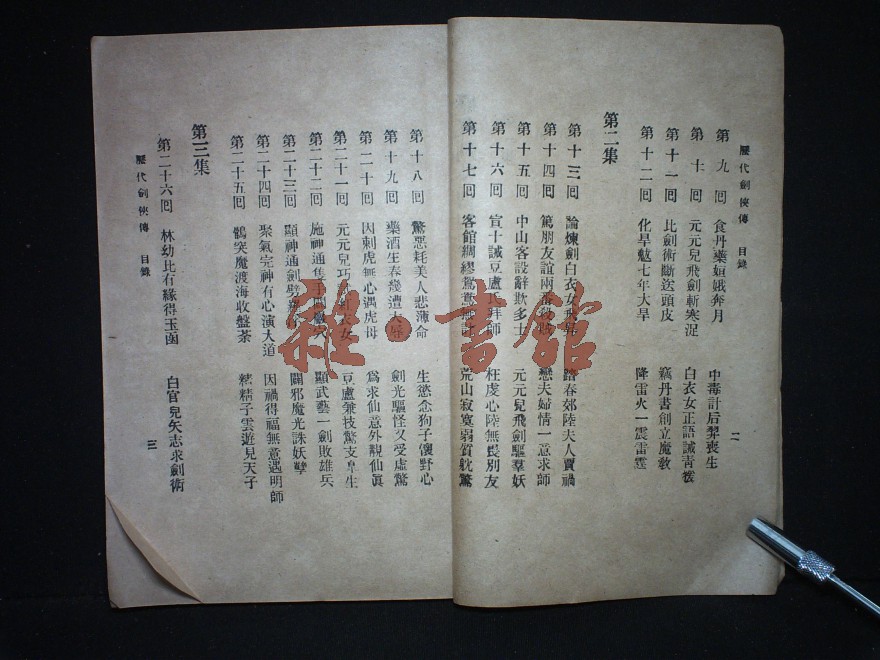 歷代劍俠傳 目錄 二
第九回 食丹藥姮娥奔月 中毒計后羿喪生
第十回 元元兒飛劍斬寒浞 白衣女正語誡靑猨
第十一回 比劍術斷送頭皮 竊丹書創立魔敎
第十二回 化旱魃七年大旱 降雷火一震雷霆
第二集
第十三回 論煉劍白衣女飛昇 踏春郊陸夫人賈禍
第十四回 篤朋友誼兩 戀夫婦情一意求師
第十五回 中山客設辭欺多士 元元兒飛劍驅羣妖
第十六回 宣十誡豆盧氏拜師 枉虔心陸無畏別友
第十七回 客館綢繆驚 荒山寂寞弱質躭驚
第十八回 驚惡耗美人悲薄命 生慾念狗子懷野心
第十九回 藥酒生春幾遭大辱 劍光驅怪又受虛驚
第二十回 因刺虎無心遇虎母 爲求仙意外覩仙眞
第二十一回 元元兒巧 衣女 豆盧兼技驚支 生
第二十二回 施神通隻手 顯武藝一劍敗雄兵
第二十三回 顯神通劍劈 鬬邪魔光誅妖孽
第二十四回 聚氣完神有心演大道 因禍得福無意遇明師
第二十五回 鶻突魔渡海收盤荼 熱精子雲遊見天子
第三集
第二十六回 林幼比有緣得玉函 白官兒矢志求劍術
歷代劍俠傳 目錄 三
雜·書館